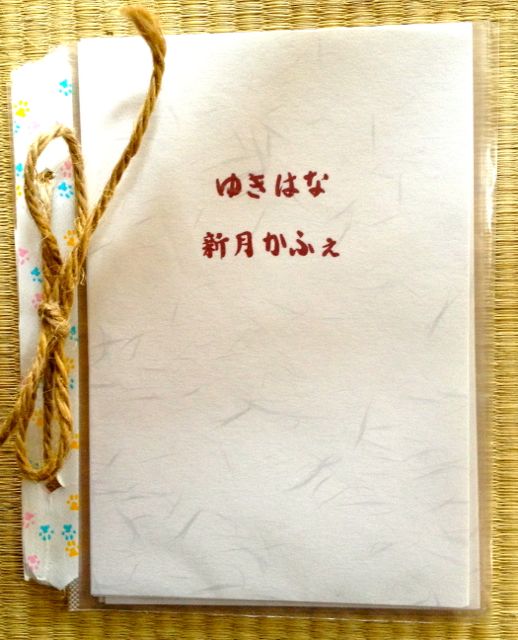 ゆきはな
新月かふぇ